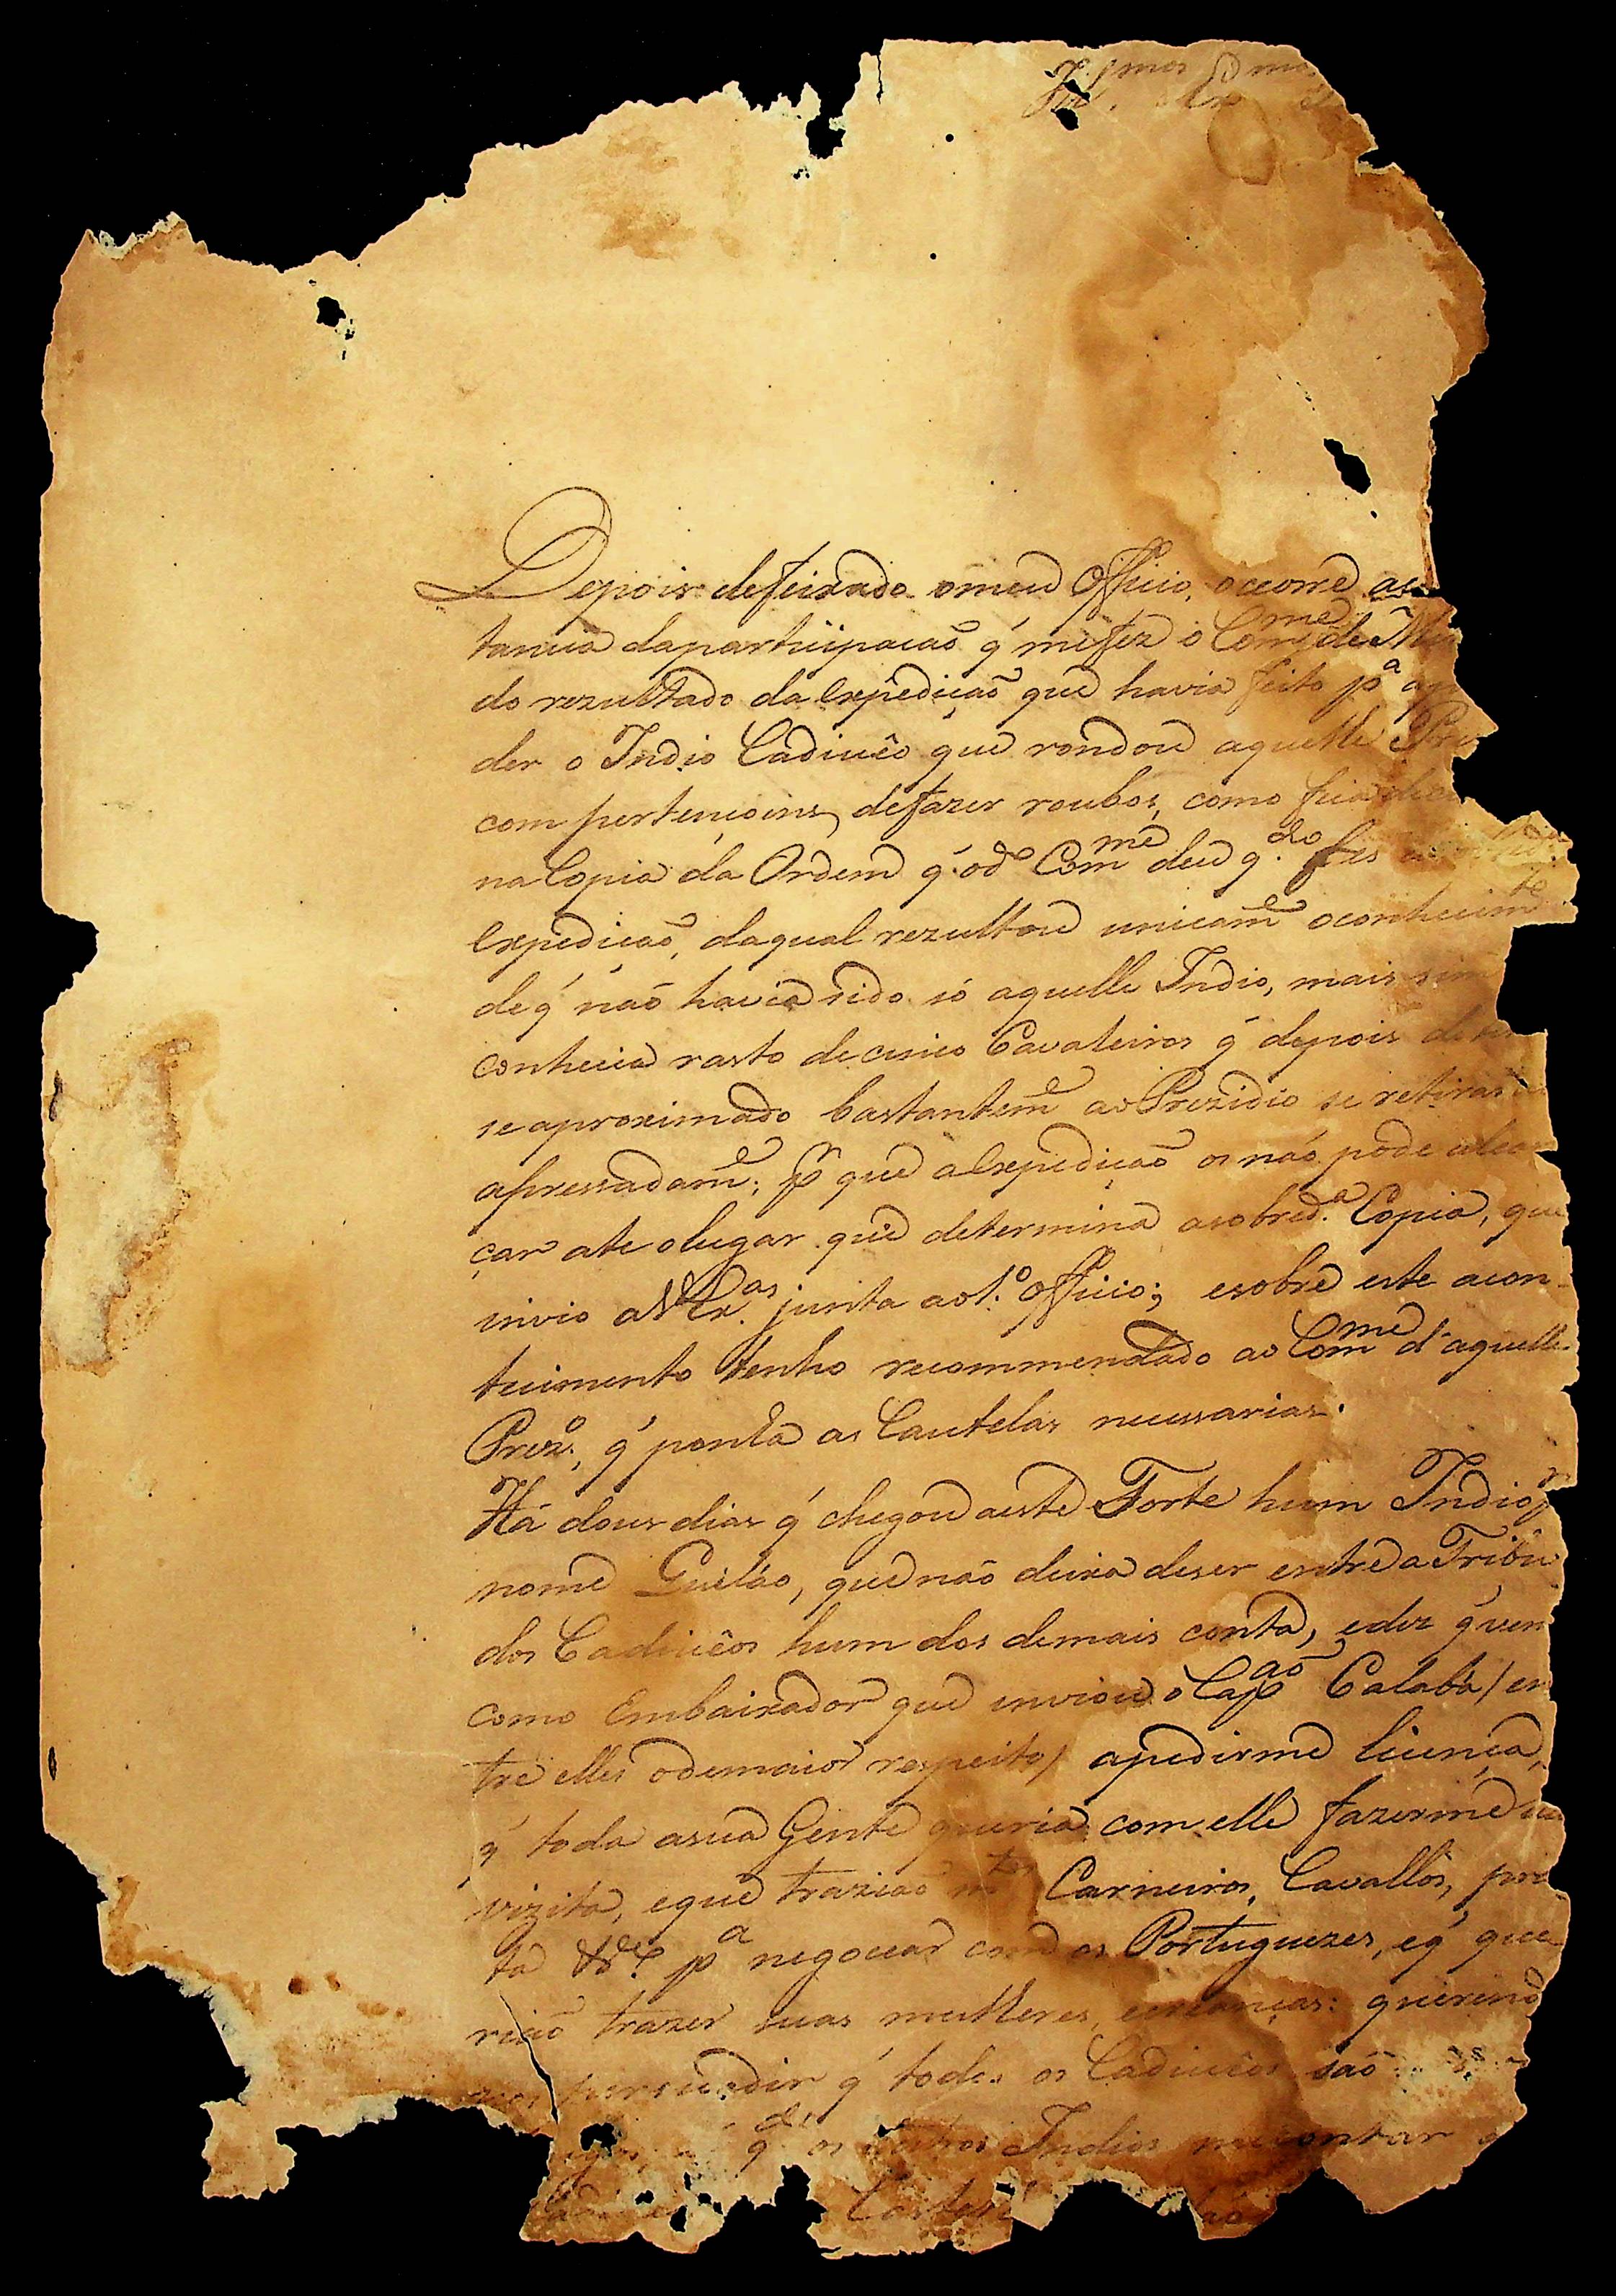 Ill.mos Ex.mos
Depois defeixado omeu Officio, occorre as
tancia daparticipacaõ q' mefez o Com.me de M
do rezultado da Expediçaõ que havia feito p.a a
der o Indio Cadiuêo que rondou aquelle Pre
com pertençoins, defazer roubos, como
na Copia da Ordem q' o d.o Com.me deu q.do fes
Expedicaõ, daqual rezultou unicam.e oconhecim.to
de q' naõ havia sido só aquelle Indio, mais sim
conhecia rasto decinco Cavaleiros q' depois de ter
se aproximado bastantem.e ao Prezidio se retiraraõ
apressadam.e; p.r que aExpediçaõ os naõ pode alcan
çar ate olugar que determina asobred.a Copia, que
invio aV Ex.as junta ao 1.o Officio; esobre este acon-
tecimento tenho recommendado ao Com.me d'aquelle
Prez.o, q' ponha as Cautelas necessarias.
Há dous dias q' chegou aeste Forte hum Indio p.r
nome Guilão, que não deixa deser entre a Tribu
dos Cadiuêos hum dos demais conta, ediz q' vem
como Embaixador que inviou o Cap.aõ Calabá / en
tre elles odemaior respeito / apedirme licença,
q' toda asua Gente queria com elle fazerme
vizita, eque traziaõ m.tos Carneiros, Cavallos, pra
ta &.e p.a negociar com os Portuguezes, eq' que
riaõ trazer suas mulheres, ecrianças: querendo
persuadir q' todos os Cadiuêos saõ
q.' os outros Indios me contar